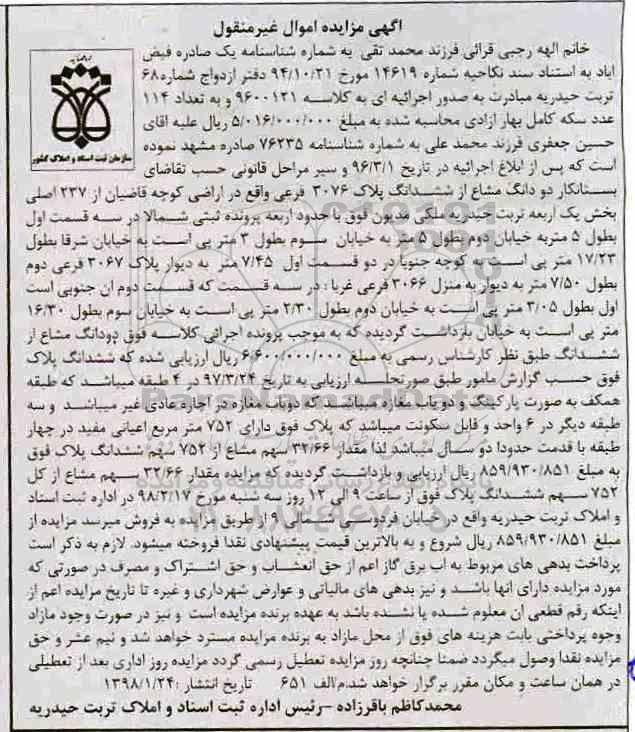 آگهی مزایده اموال غیرمنقول
خانم الهه رجبی قرائی فرزند محمد تقی به شماره شناسنامه یک صادره فیض
اباد به استناد سند نکاحیه شماره ۱۴۶۱۹ مورخ ۹۴/۱۰/۲۱ دفتر ازدواج شماره ۶۸
تربت حیدریه مبادرت به صدور اجرائیه ای به کلاسه ۹۶۰۰۱۲۱ و به تعداد ۱۱۴
عدد سکه کامل بهار ازادی محاسبه شده به مبلغ ۵/۰۱۶/۰۰۰/۰۰۰ ریال علیه اقای
حسین جعفری فرزند محمد علی به شماره شناسنامه ۷۶۲۳۵ صادره مشهد نموده
است که پس از ابلاغ اجرائیه در تاریخ ۹۶/۳/۱ و سیر مراحل قانونی حسب تقاضای
بستانکار دو دانگ مشاع از ششدانگ پلاک ۳۰۷۶ فرعی واقع در اراضی کوچه قاضیان از ۲۳۷ اصلی
بخش یک اربعه تربت حیدریه ملکی مدیون فوق با حدود اربعه پرونده ثبتی شمالا در سه قسمت اول
بطول ۵ متر به خیابان دوم بطول ۵ متر به خیابان سوم بطول ۳ متر پی است به خیابان شرقا بطول
۱۷/۲۳ متر پی است به کوچه جنوبا در دو قسمت اول ۷/۴۵ متر به دیوار پلاک ۳۰۶۷ فرعی دوم
بطول ۷/۵۰ متر به دیوار به منزل ۳۰۶۶ فرعی غربا : در سه قسمت که قسمت دوم ان جنوبی است
اول بطول ۳/۰۵ متر پی است به خیابان دوم بطول ۲/۳۰ متر پی است به خیابان سوم بطول ۱۶/۳۰
متر پی است به خیابان بازداشت گردیده که به موجب پرونده اجرائی کلاسه فوق دودانگ مشاع از
ششدانگ طبق نظر کارشناس رسمی به مبلغ ۶/۶۰۰/۰۰۰/۰۰۰ ریال ارزیابی شده که ششدانگ پلاک
فوق حسب گزارش مامور طبق صورتجلسه ارزیابی به تاریخ ۹۷/۳/۲۴ در ۴ طبقه میباشد که طبقه
همکف به صورت پارکینگ و دو باب مغازه میباشد که دوباب مغازه در اجاره عادی غیر میباشد و سه
طبقه دیگر در ۶ واحد و قابل سکونت میباشد که پلاک فوق دارای ۷۵۲ متر مربع اعیانی مفید در چهار
طبقه با قدمت حدودا دو سال میباشد لذا مقدار ۳۲/۶۶ سهم مشاع از ۷۵۲ سهم ششدانگ پلاک فوق
به مبلغ ۸۵۹/۹۳۰/۸۵۱ ریال ارزیابی و بازداشت گردیده که مزایده مقدار ۳۲/۶۶ سهم مشاع از کل
۷۵۲ سهم ششدانگ پلاک فوق از ساعت ۹ الی ۱۲ روز سه شنبه مورخ ۹۸/۲/۱۷ در اداره ثبت اسناد
و املاک تربت حیدریه واقع در خیابان فردوسی شمالی ۹ از طریق مزایده به فروش میرسد مزایده از
مبلغ ۸۵۹/۹۳۰/۸۵۱ ریال شروع و به بالاترین قیمت پیشنهادی نقدا فروخته میشود. لازم به ذکر است
پرداخت بدهی های مربوط به اب برق گاز اعم از حق انعشاب و حق اشتراک و مصرف در صورتی که
مورد مزایده دارای انها باشد و نیز بدهی های مالیاتی و عوارض شهرداری و غیره تا تاریخ مزایده اعم از
اینکه رقم قطعی ان معلوم شده یا نشده باشد به عهده برنده مزایده است و نیز در صورت وجود مازاد
وجوه پرداختی بابت هزینه های فوق از محل مازاد به برنده مزایده مسترد خواهد شد و نیم عشر و حق
مزایده نقدا وصول میگردد ضمنا چنانچه روز مزایده تعطیل رسمی گردد مزایده روز اداری بعد از تعطیلی
در همان ساعت و مکان مقرر برگزار خواهد شد.م/الف ۶۵۱ تاریخ انتشار :۱۳۹۸/۱/۲۴
محمدکاظم باقرزاده –رئیس اداره ثبت اسناد و املاک تربت حیدریه
سازمان ثبت اسناد و املاک کشور